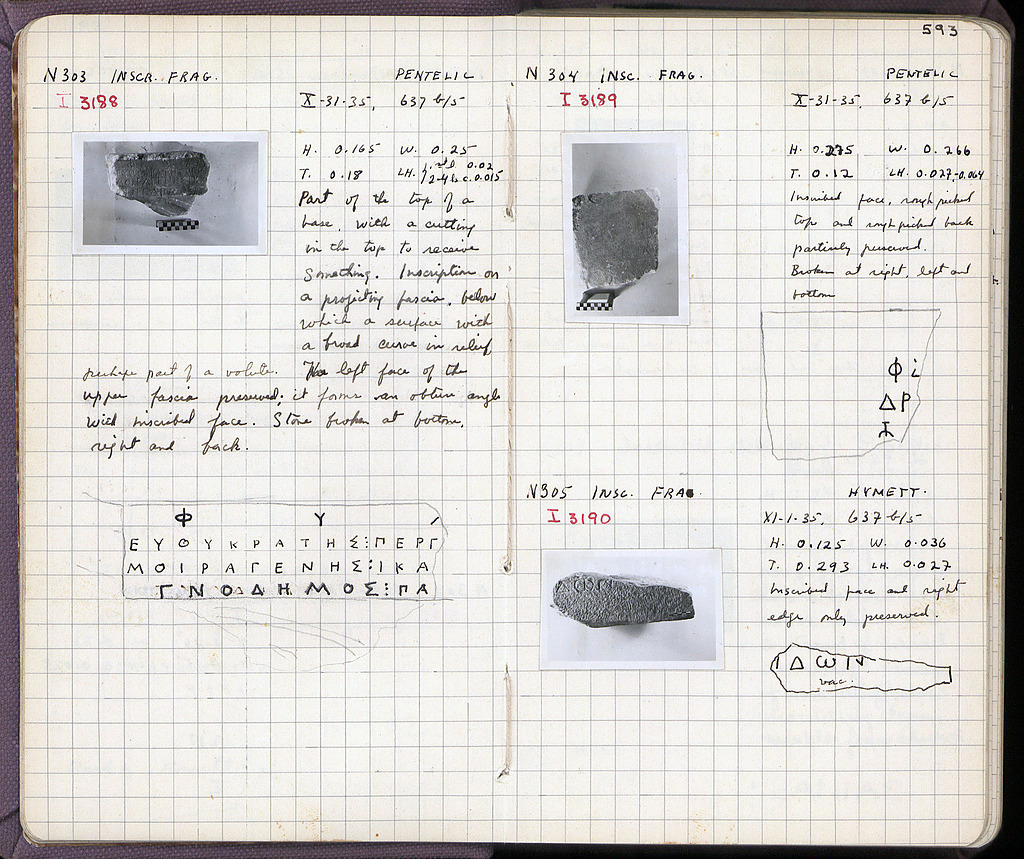 593
N 303 INSCR. FRAG. PENTELIC
I 3188 X-31-35, 637 b/5
H. 0.165 W. 0.25
T. 0.18 LH. 1. 0.02
2-4 0.015
Part of the top of a
base, with a cutting
in the top to receive
something. Inscription on
a projecting fascia, below
which a surface with
a broad curve in relief,
perhaps part of a volute. The left face of the
upper fascia preserved; it forms an obtuse angle
with inscribed face. Stone broken at bottom,
right and back.
Φ Υ
ΕΥΘΥΚΡΑΤΗΣ⋮ΠΕΡΓ
ΜΟΙΡΑΓΕΝΗΣ⋮ΙΚΑ
ΓΝΟΔΗΜΟΣ⋮ΠΑ
N 304 INSC. FRAG. PENTELIC
I 3189 X-31-35, 637 b/5
H. 0.275 W. 0.266
T. 0.12 LH. 0.027-0.064
Inscribed face, rough picked
top and rough picked back
partially preserved.
Broken at right, left and
bottom
Φ ι
Δ Ρ
N305 INSC. FRAG. HYMETT.
I 3190 XI-1-35, 637 b/5
H. 0.125 W. 0.036
T. 0.293 LH. 0.027
Inscribed face and right
edge only preserved.
Ι Δ Ω Ν
vac.